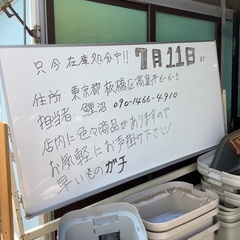 只今在庫処分中!! 7月11日まで
住所 東京都板橋区高島平6-6-5
担当者 鯉沼 090-1466-4910
店内に色々商品がありますので
お気軽にお手掛け下さい!
早いものガチ